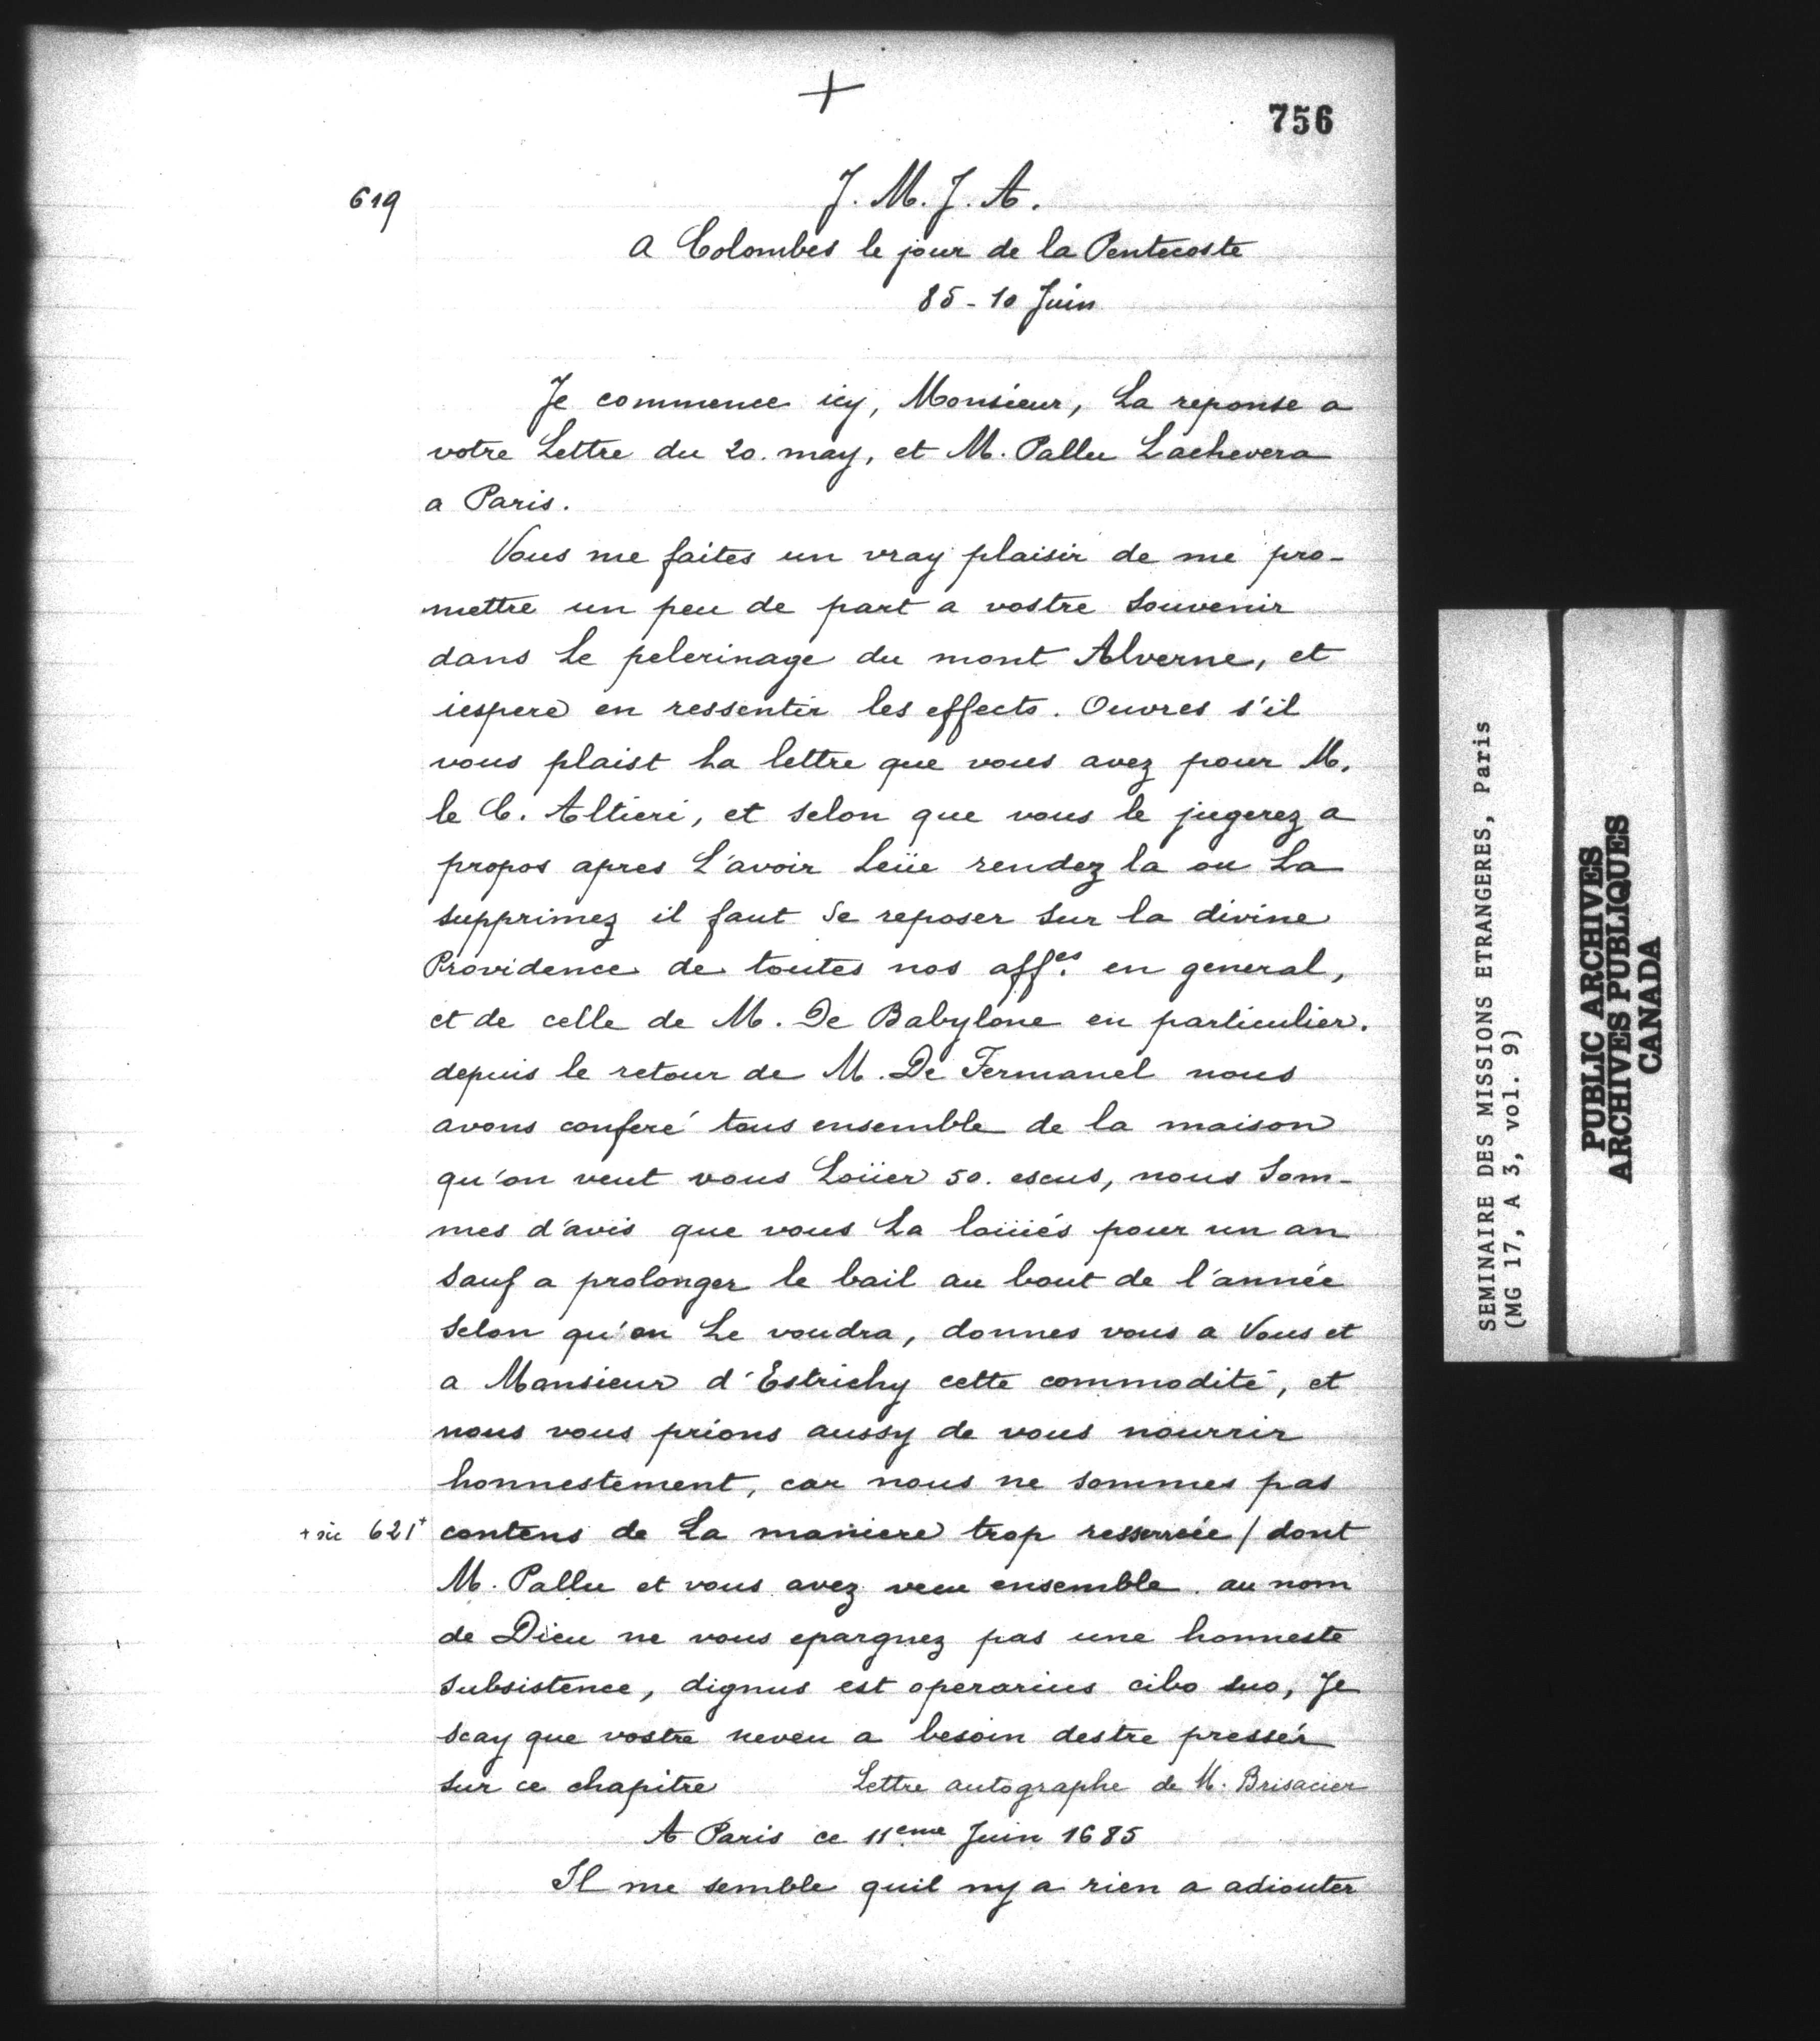 +
756
619
J. M. J. A.
A Colombes le jour de la Pentecoste
85 - 10 Juin
Je commence icy, Monsieur, La reponse a
votre Lettre du 20. may, et M. Pallu Lachevera
a Paris.
Vous me faites un vray plaisir de me pro-
mettre un peu de part a vostre Souvenir
dans Le pelerinage du mont Alverne, et
iespere en ressentir les effects. Ouvres s'il
vous plaist La lettre que vous avez pour M.
le C. Altieri, et selon que vous le jugerez a
propos apres L'avoir Leüe rendez la ou La
supprimez il faut Se reposer Sur la divine
Providence de toutes nos aff.es en general,
et de celle de M. De Babylone en particulier.
depuis le retour de M. De Fermanel nous
avons conferé tous ensemble de la maison
qu'on veut vous Loüer 50. escus, nous Som-
mes d'avis que vous La loüiés pour un an
Sauf a prolonger le bail au bout de l'année
Selon qu'on Le voudra, donnes vous a Vous et
a Monsieur d'Estrichy cette commodité, et
nous vous prions aussy de vous nourrir
honnestement, car nous ne sommes pas
+ sic 621+ contens de La maniere trop resserrée / dont
M. Pallu et vous avez veeu ensemble. au nom
de Dieu ne vous epargnez pas une honneste
Subsistence, dignus est operarius cibo suo, Je
Scay que vostre neveu a besoin destre pressér
Sur ce chapitre Lettre autographe de M. Brisacier
A Paris ce 11eme Juin 1685
Il me semble quil ny a rien a adiouter
SEMINAIRE DES MISSIONS ETRANGERES, Paris
(MG 17, A 3, vol. 9)
PUBLIC ARCHIVES
ARCHIVES PUBLIQUES
CANADA